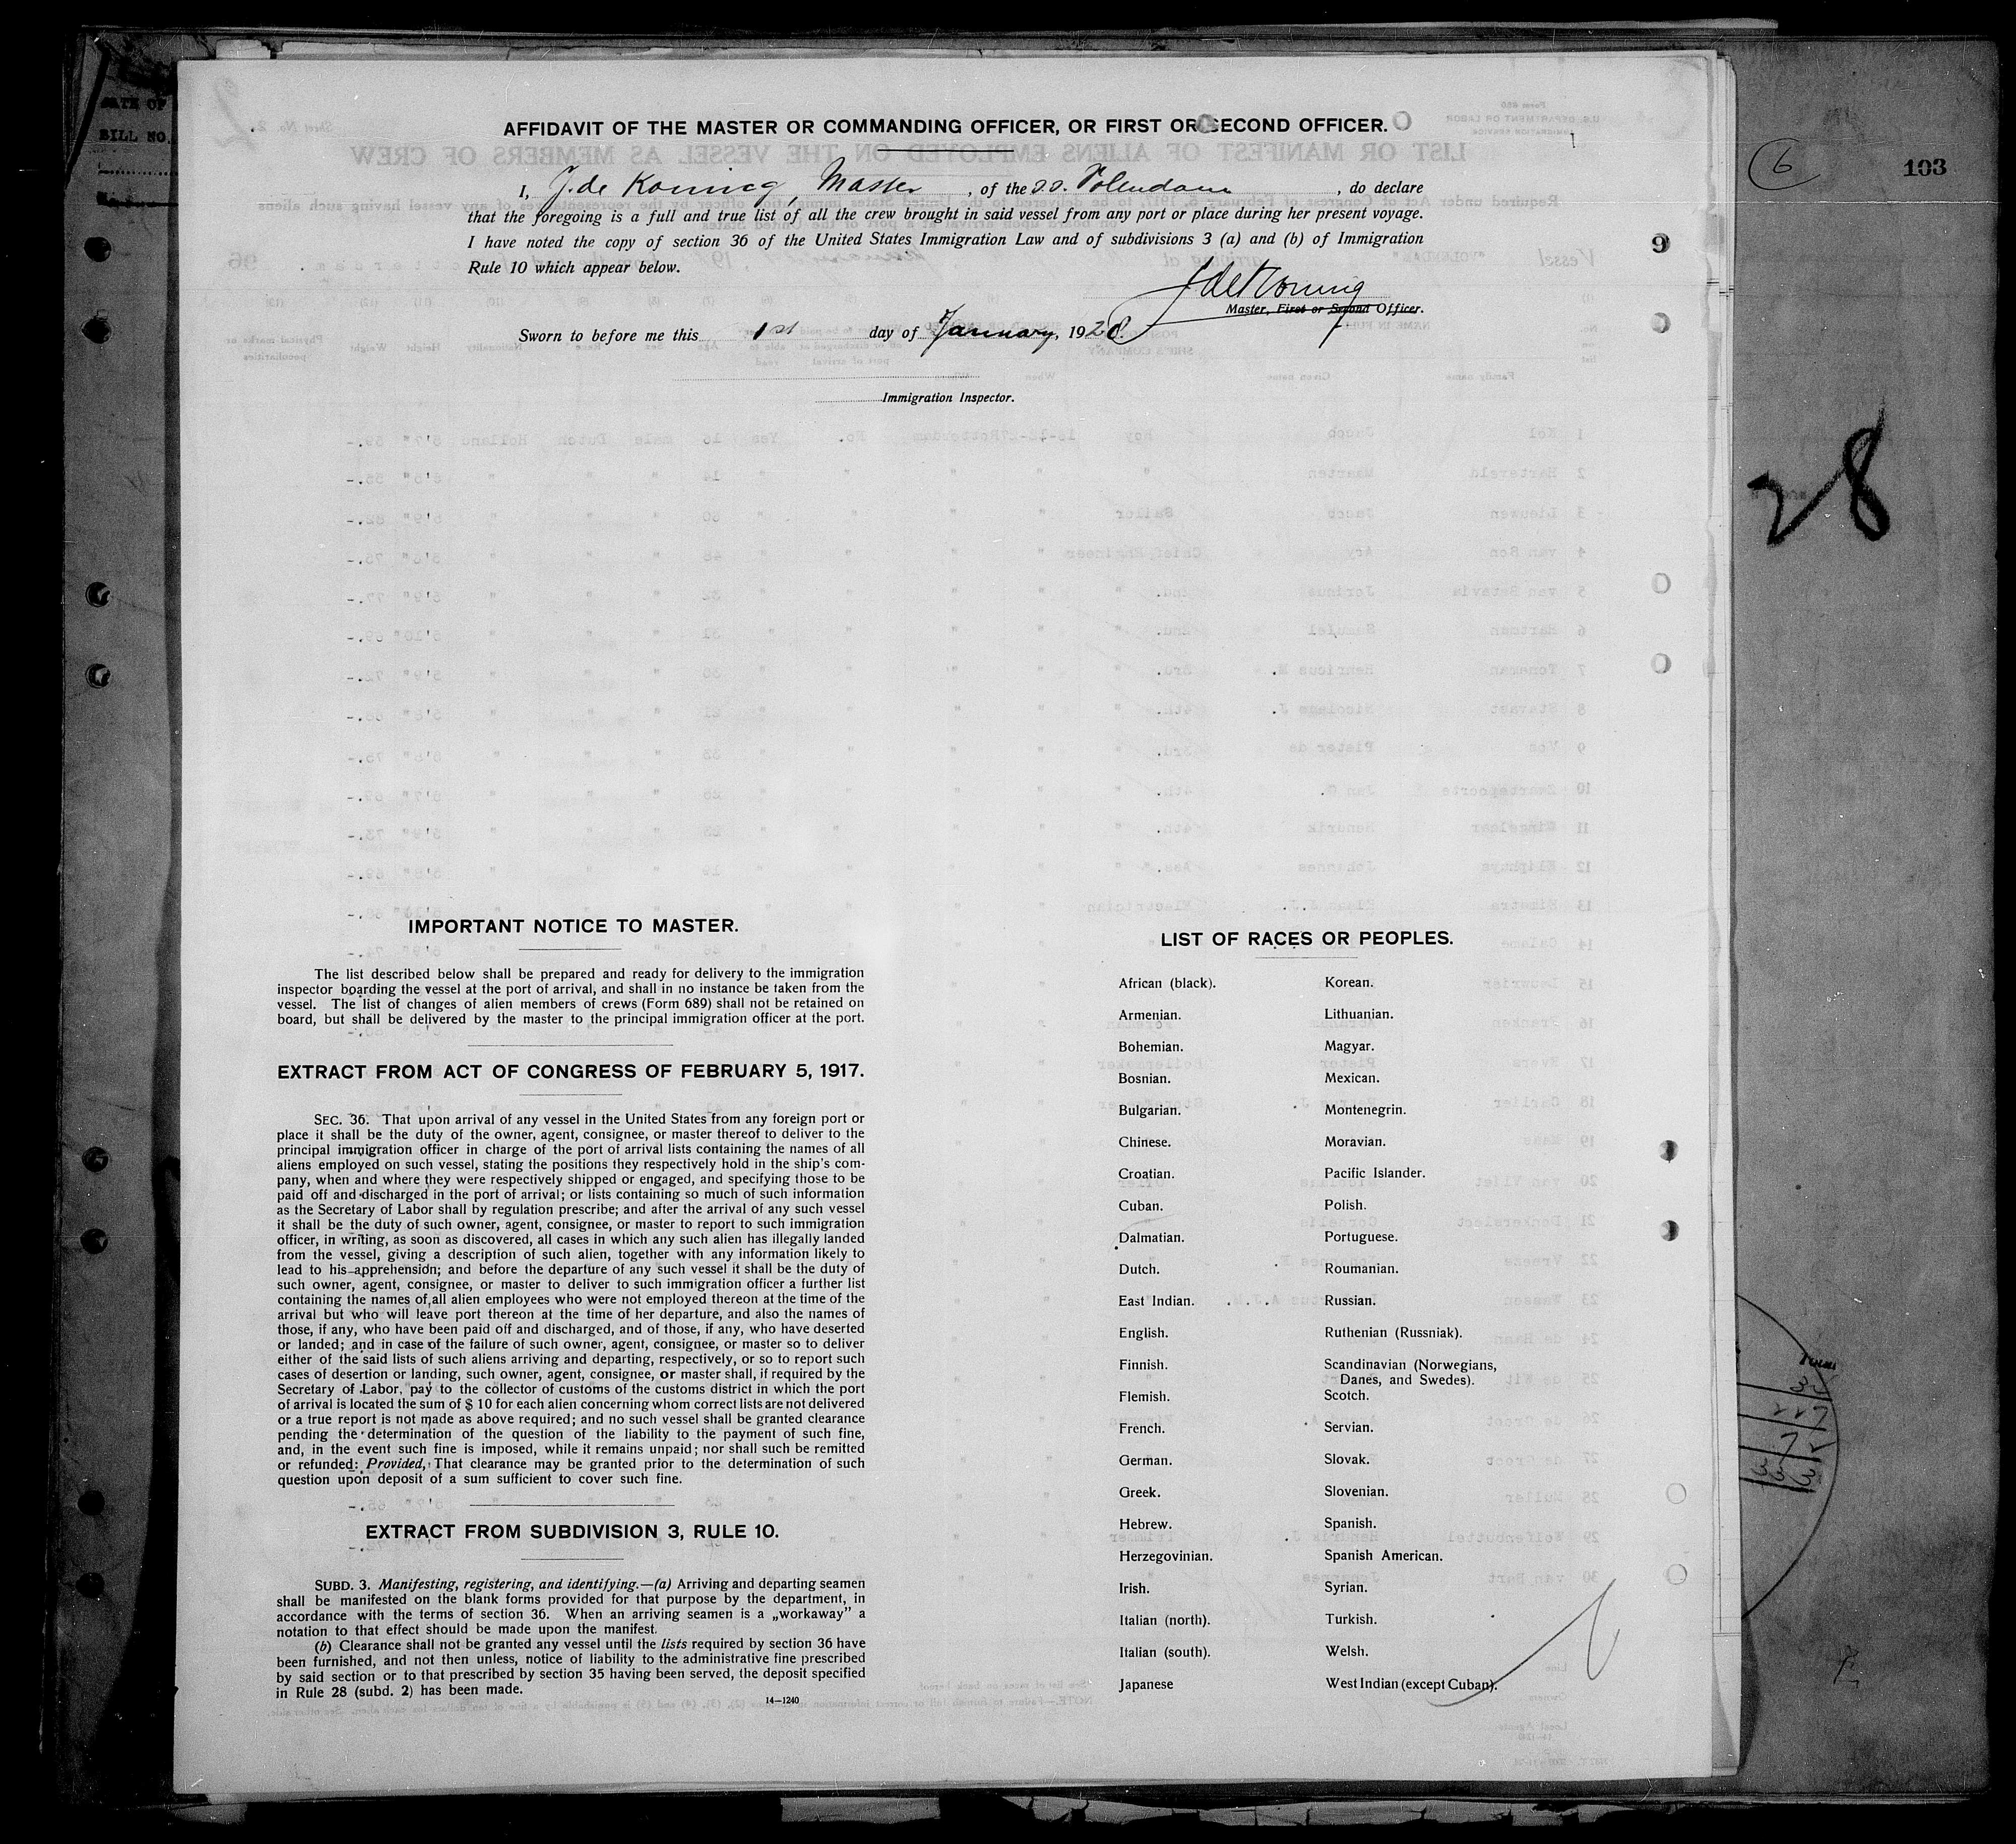 103
6
9
28
DATE OF
BILL NO.
AFFIDAVIT OF THE MASTER OR COMMANDING OFFICER, OR FIRST OR SECOND OFFICER.
I, J. de Koning, Master, of the s.s. Volendam, do declare
that the foregoing is a full and true list of all the crew brought in said vessel from any port or place during her present voyage.
I have noted the copy of section 36 of the United States Immigration Law and of subdivisions 3 (a) and (b) of Immigration
Rule 10 which appear below.
J de Koning
Master, First or Second Officer.
Sworn to before me this 1st day of January, 1928.
Immigration Inspector.
IMPORTANT NOTICE TO MASTER.
The list described below shall be prepared and ready for delivery to the immigration
inspector boarding the vessel at the port of arrival, and shall in no instance be taken from the
vessel. The list of changes of alien members of crews (Form 689) shall not be retained on
board, but shall be delivered by the master to the principal immigration officer at the port.
EXTRACT FROM ACT OF CONGRESS OF FEBRUARY 5, 1917.
SEC. 36. That upon arrival of any vessel in the United States from any foreign port or
place it shall be the duty of the owner, agent, consignee, or master thereof to deliver to the
principal immigration officer in charge of the port of arrival lists containing the names of all
aliens employed on such vessel, stating the positions they respectively hold in the ship's com-
pany, when and where they were respectively shipped or engaged, and specifying those to be
paid off and discharged in the port of arrival; or lists containing so much of such information
as the Secretary of Labor shall by regulation prescribe; and after the arrival of any such vessel
it shall be the duty of such owner, agent, consignee, or master to report to such immigration
officer, in writing, as soon as discovered, all cases in which any such alien has illegally landed
from the vessel, giving a description of such alien, together with any information likely to
lead to his apprehension; and before the departure of any such vessel it shall be the duty of
such owner, agent, consignee, or master to deliver to such immigration officer a further list
containing the names of all alien employees who were not employed thereon at the time of the
arrival but who will leave port thereon at the time of her departure, and also the names of
those, if any, who have been paid off and discharged, and of those, if any, who have deserted
or landed; and in case of the failure of such owner, agent, consignee, or master so to deliver
either of the said lists of such aliens arriving and departing, respectively, or so to report such
cases of desertion or landing, such owner, agent, consignee, or master shall, if required by the
Secretary of Labor, pay to the collector of customs of the customs district in which the port
of arrival is located the sum of $ 10 for each alien concerning whom correct lists are not delivered
or a true report is not made as above required; and no such vessel shall be granted clearance
pending the determination of the question of the liability to the payment of such fine,
and, in the event such fine is imposed, while it remains unpaid; nor shall such be remitted
or refunded: Provided, That clearance may be granted prior to the determination of such
question upon deposit of a sum sufficient to cover such fine.
EXTRACT FROM SUBDIVISION 3, RULE 10.
SUBD. 3. Manifesting, registering, and identifying.—(a) Arriving and departing seamen
shall be manifested on the blank forms provided for that purpose by the department, in
accordance with the terms of section 36. When an arriving seamen is a „workaway” a
notation to that effect should be made upon the manifest.
(b) Clearance shall not be granted any vessel until the lists required by section 36 have
been furnished, and not then unless, notice of liability to the administrative fine prescribed
by said section or to that prescribed by section 35 having been served, the deposit specified
in Rule 28 (subd. 2) has been made.
14—1240
LIST OF RACES OR PEOPLES.
African (black).
Armenian.
Bohemian.
Bosnian.
Bulgarian.
Chinese.
Croatian.
Cuban.
Dalmatian.
Dutch.
East Indian.
English.
Finnish.
Flemish.
French.
German.
Greek.
Hebrew.
Herzegovinian.
Irish.
Italian (north).
Italian (south).
Japanese
Korean.
Lithuanian.
Magyar.
Mexican.
Montenegrin.
Moravian.
Pacific Islander.
Polish.
Portuguese.
Roumanian.
Russian.
Ruthenian (Russniak).
Scandinavian (Norwegians,
Danes, and Swedes).
Scotch.
Servian.
Slovak.
Slovenian.
Spanish.
Spanish American.
Syrian.
Turkish.
Welsh.
West Indian (except Cuban).